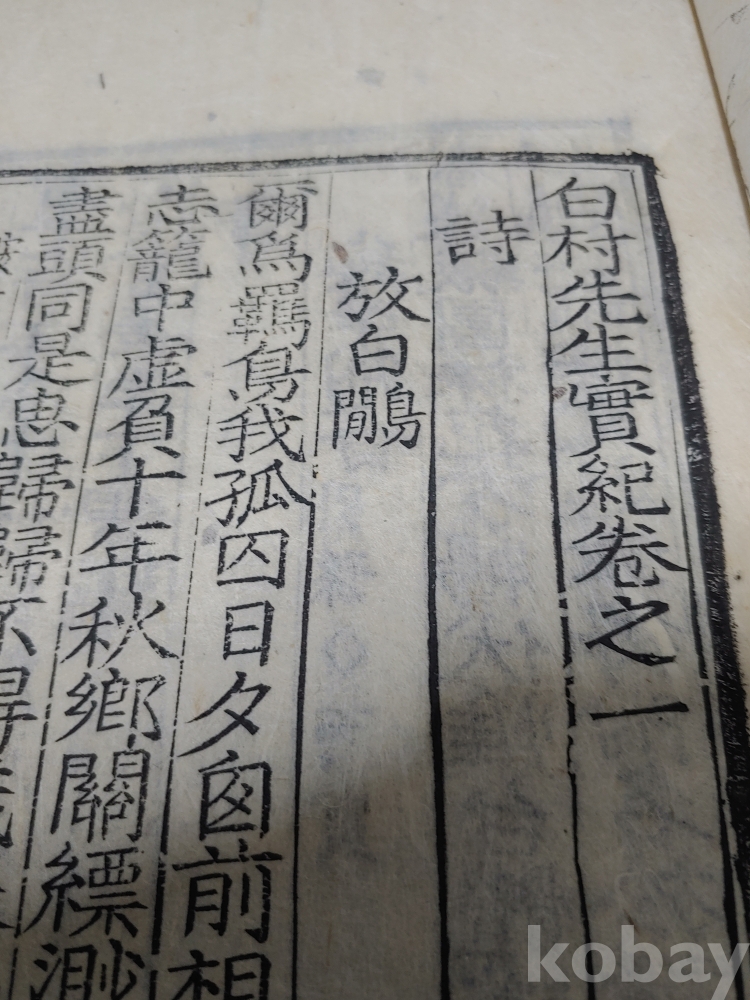 白村先生實紀卷之一
詩
放白鷴
爾爲羈鳥我孤囚日夕囱前相
志籠中虛負十年秋鄕關縹渺
盡頭同是思歸歸不得
kobay